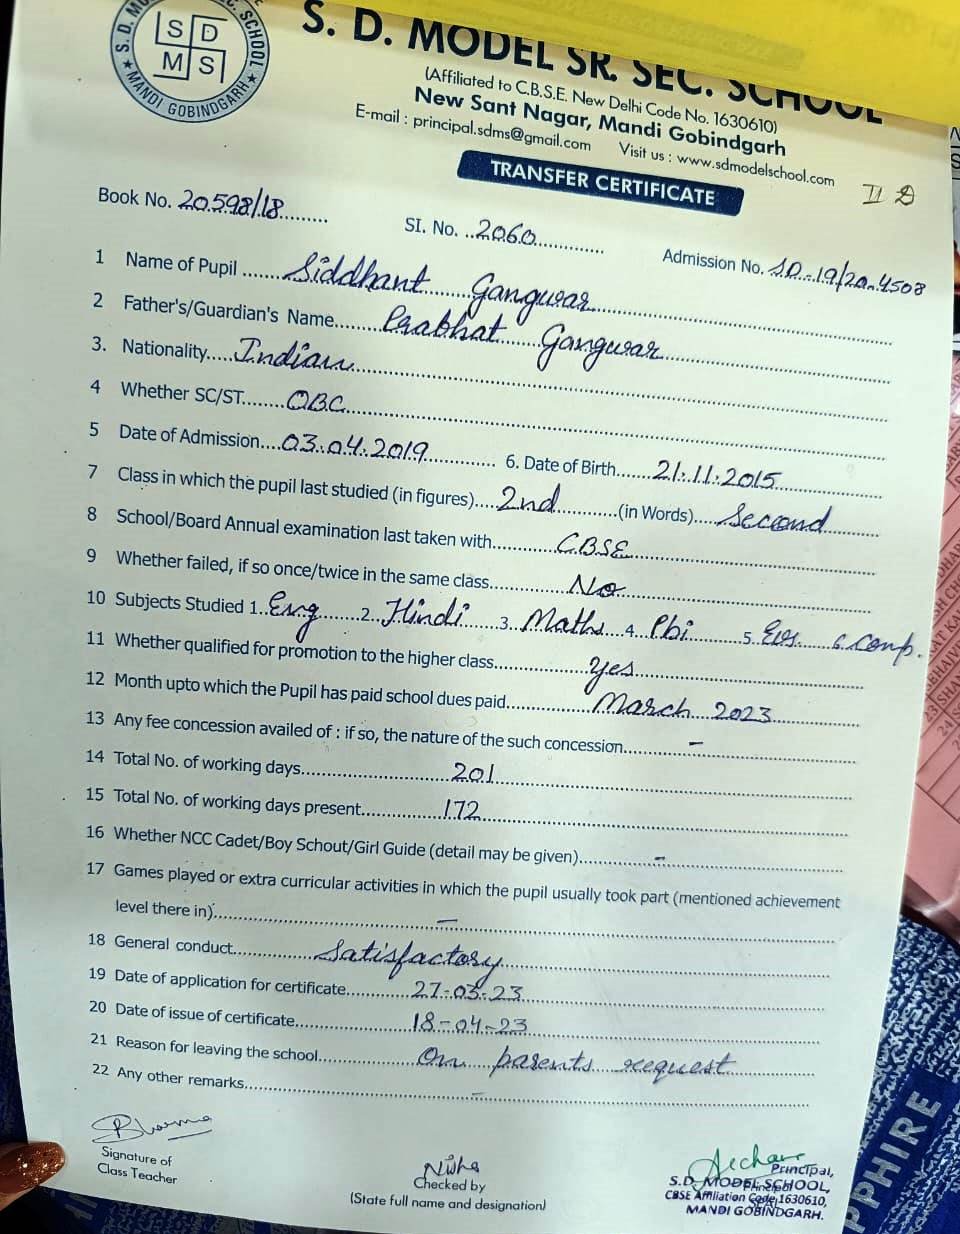 S. D. MODEL SR. SEC. SCHOOL
S D
M S
MANDI GOBINDGARH
(Affiliated to C.B.S.E. New Delhi Code No. 1630610)
New Sant Nagar, Mandi Gobindgarh
E-mail : principal.sdms@gmail.com Visit us : www.sdmodelschool.com
TRANSFER CERTIFICATE
Book No. 20598/18 SI. No. 2060 Admission No. SD-19/20-4508
1 Name of Pupil Siddhant Gangwar
2 Father's/Guardian's Name Prabhat Gangwar
3. Nationality Indian
4 Whether SC/ST OBC
5 Date of Admission 03.04.2019 6. Date of Birth 21.11.2015
7 Class in which the pupil last studied (in figures) 2nd (in Words) Second
8 School/Board Annual examination last taken with CBSE
9 Whether failed, if so once/twice in the same class No
10 Subjects Studied 1 Eng 2 Hindi 3 Maths 4 Pbi 5 Evs 6 Comp.
11 Whether qualified for promotion to the higher class yes
12 Month upto which the Pupil has paid school dues paid March 2023
13 Any fee concession availed of : if so, the nature of the such concession -
14 Total No. of working days 201
15 Total No. of working days present 172
16 Whether NCC Cadet/Boy Schout/Girl Guide (detail may be given) -
17 Games played or extra curricular activities in which the pupil usually took part (mentioned achievement
level there in) -
18 General conduct Satisfactory
19 Date of application for certificate 27-03-23
20 Date of issue of certificate 18-04-23
21 Reason for leaving the school On parents request
22 Any other remarks -
Signature of
Class Teacher
Nisha
Checked by
(State full name and designation)
Principal,
S.D. MODEL SCHOOL,
CBSE Affiliation Code 1630610,
MANDI GOBINDGARH.
PPHIRE